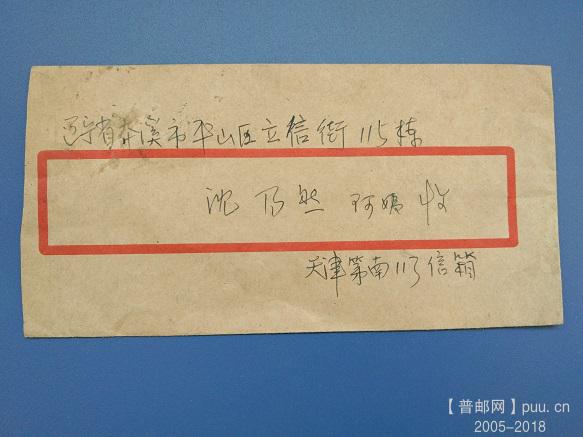 辽宁省本溪市平山区立信街115栋
沈乃然 阿姨 收
天津第南113信箱
【普邮网】puu.cn
2005-2018